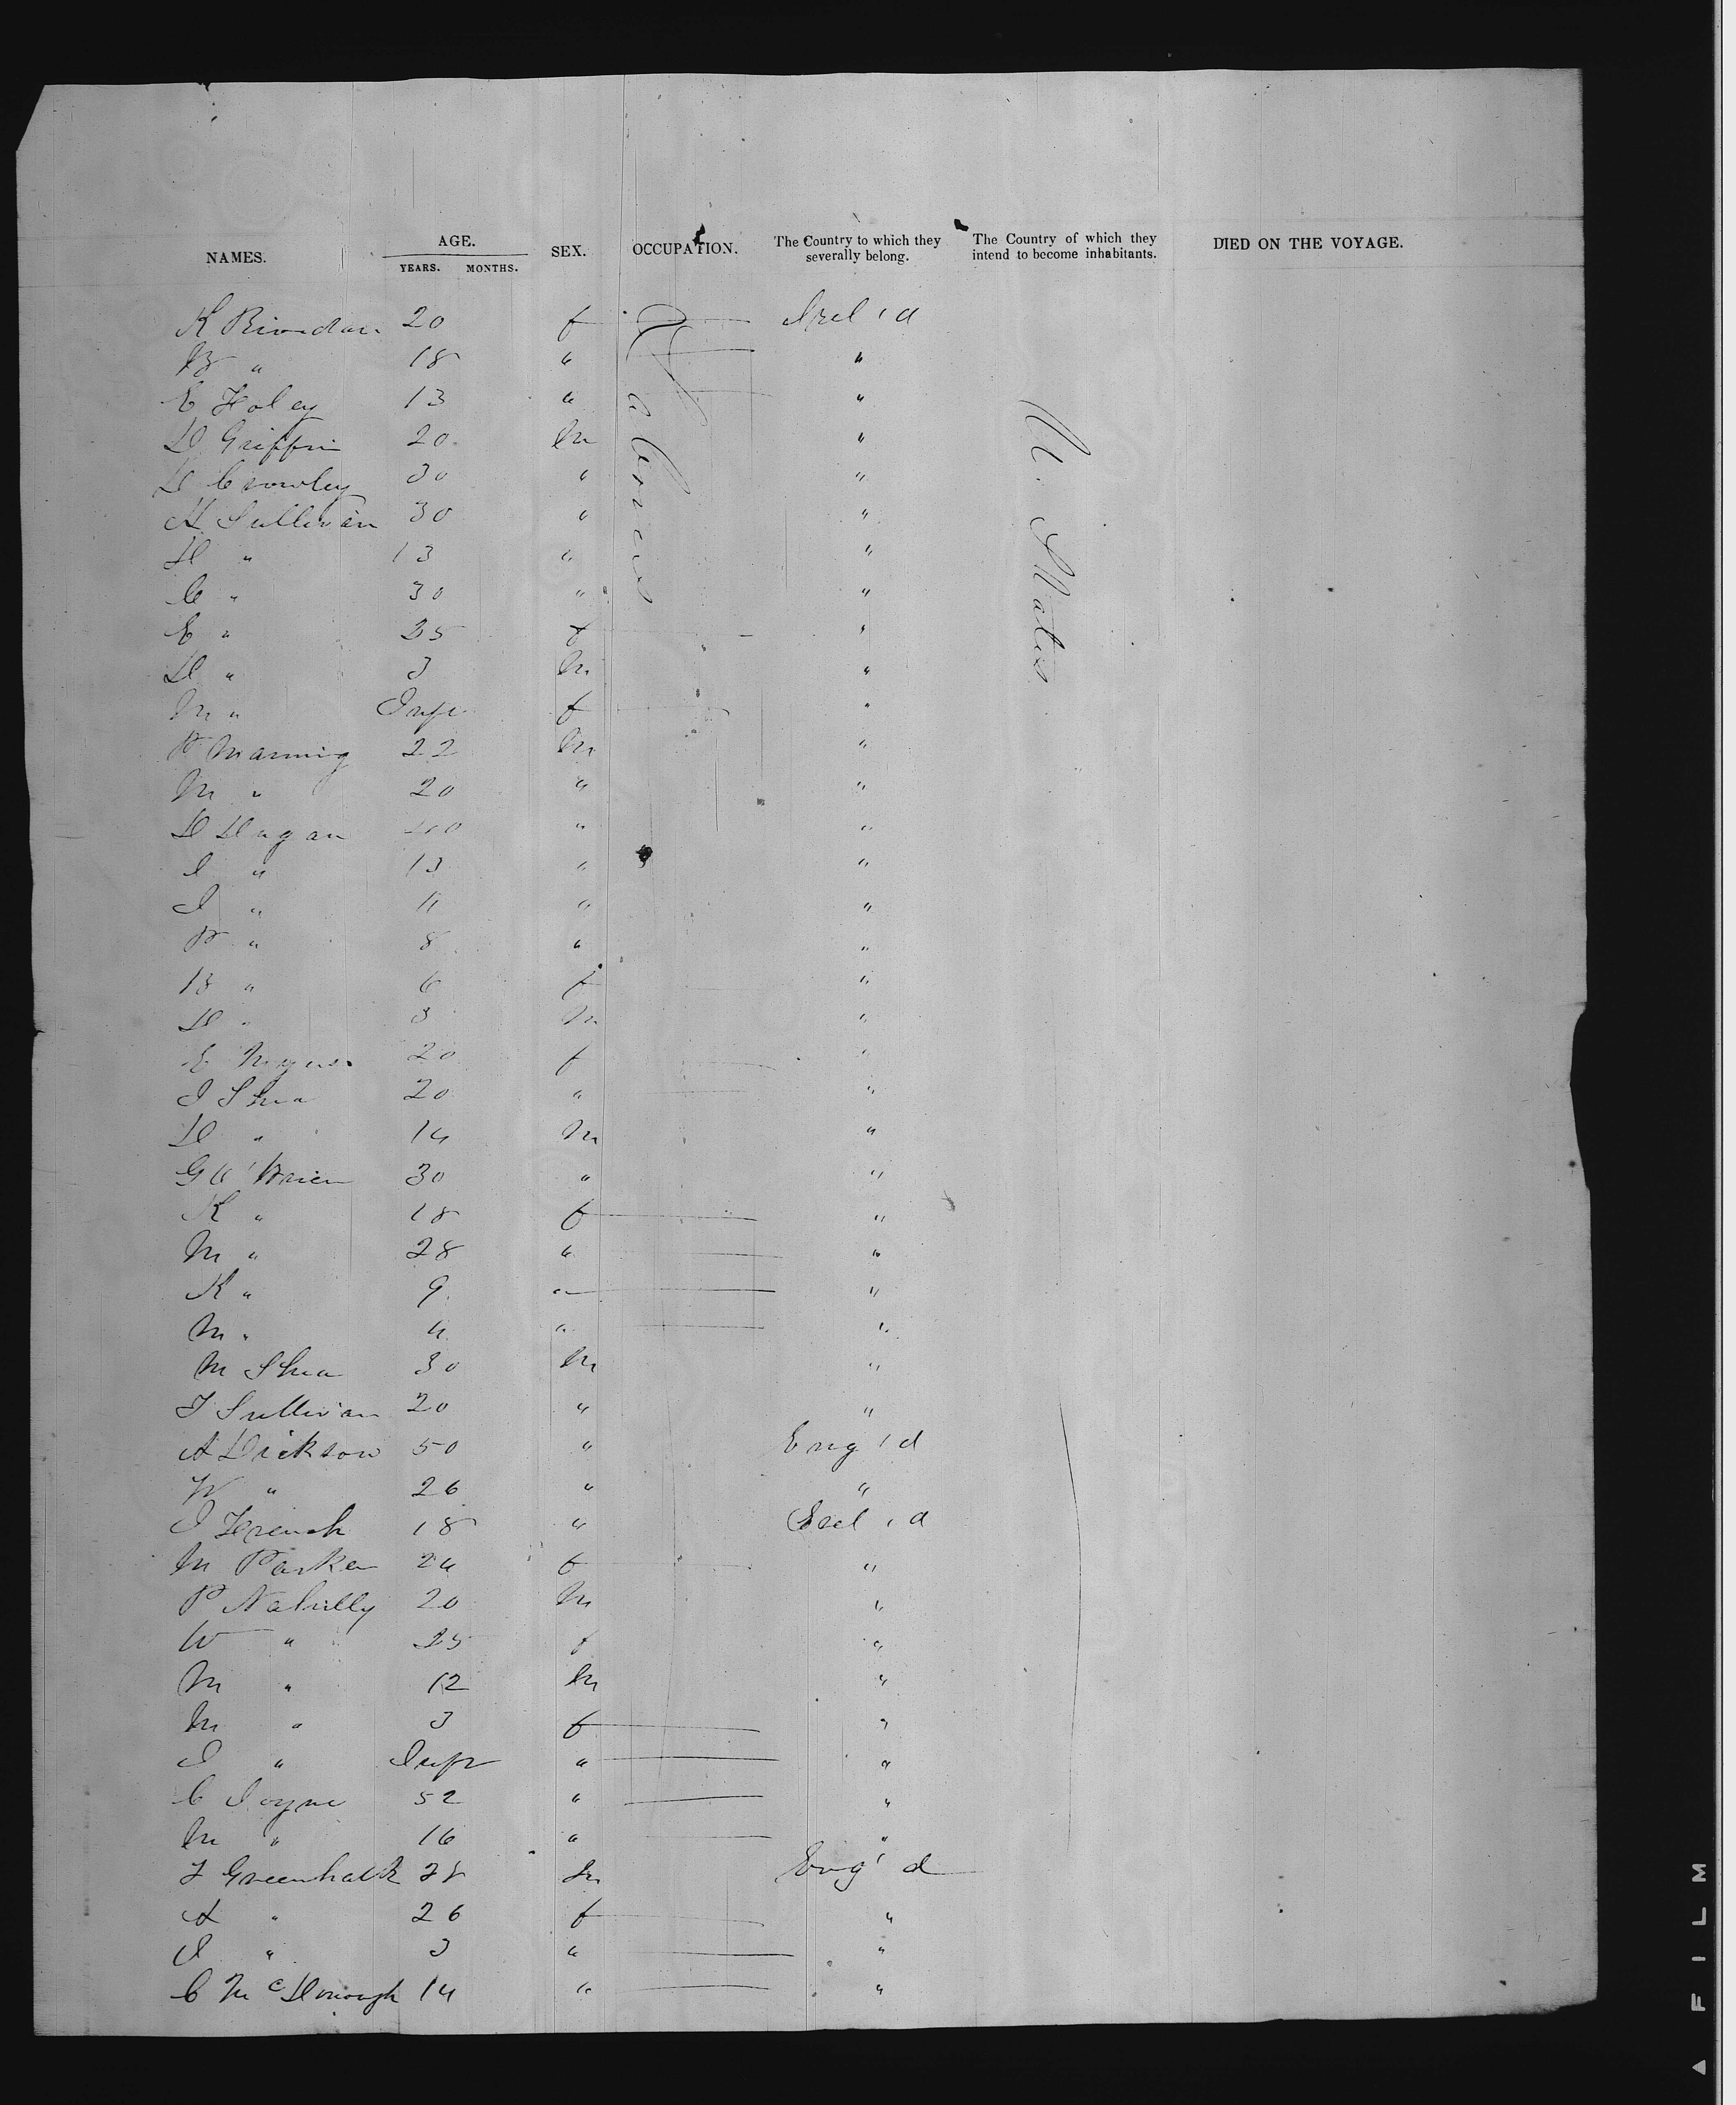 NAMES. AGE. SEX. OCCUPATION. The Country to which they severally belong. The Country of which they intend to become inhabitants. DIED ON THE VOYAGE.
YEARS. MONTHS.
K Riordan 20 f Irel'd
B " 18 " "
E Foley 13 " "
D Griffin 20 m "
D Crowley 30 " "
H Sullivan 30 " "
D " 13 " "
C " 30 " "
E " 25 f "
D " 3 m "
M " Inft f "
P Manning 22 m "
M " 20 " "
D Dugan 40 " "
I " 13 " "
J " 11 " "
P " 8 " "
B " 6 f "
D " 3 m "
E 20 f "
J Shea 20 " "
D " 14 m "
G O'Brien 30 " "
K " 18 f "
M " 28 " "
K " 9 " "
M " 4 " "
M Shea 30 m "
J Sullivan 20 " "
A Dickson 50 " Eng'd
W " 26 " "
J French 18 " Irel'd
M Parker 24 f "
P 20 m "
W " 25 f "
M " 12 m "
M " 3 f "
J " Inft " "
C Joyne 52 " "
M " 16 " "
J Greenhalk 28 m Eng'd
A " 26 f "
J " 3 " "
C McDonough 14 " "
Labourers
U. States
FILM